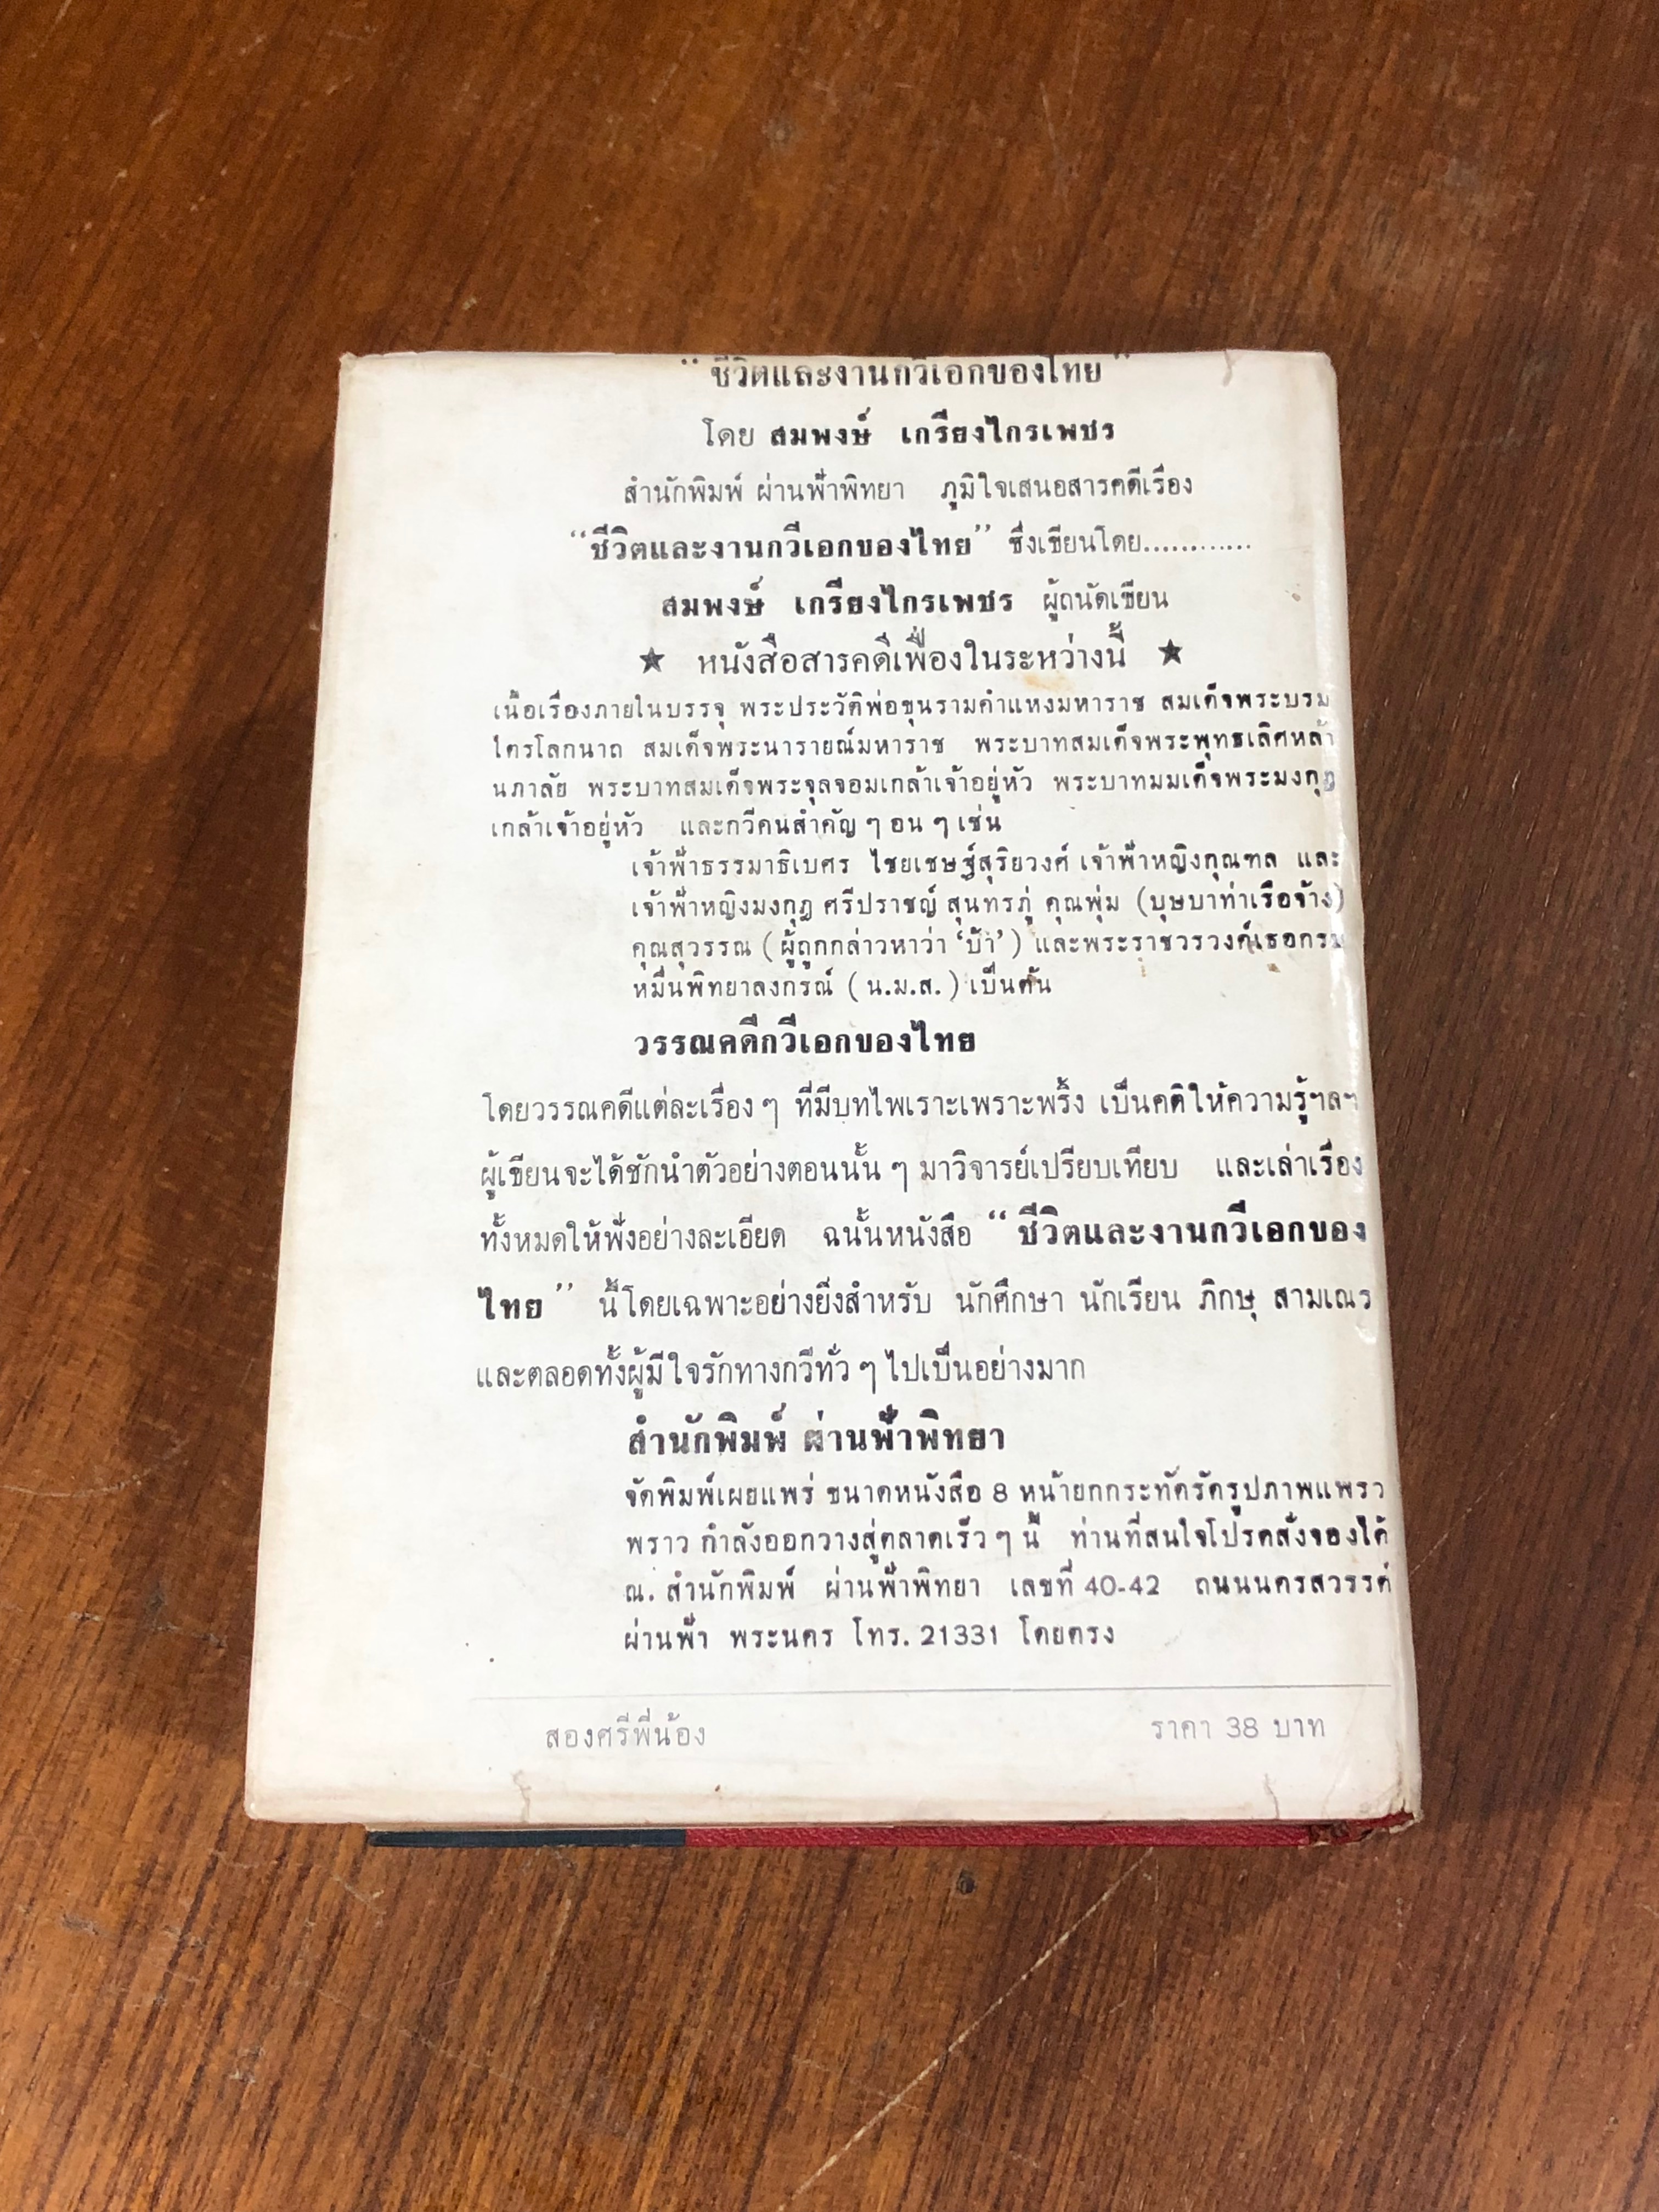 “ชีวิตและงานกวีเอกของไทย”
โดย สมพงษ์ เกรียงไกรเพชร
สำนักพิมพ์ ผ่านฟ้าพิทยา ภูมิใจเสนอสารคดีเรื่อง
“ชีวิตและงานกวีเอกของไทย” ซึ่งเขียนโดย............
สมพงษ์ เกรียงไกรเพชร ผู้ถนัดเขียน
★ หนังสือสารคดีเฟื่องในระหว่างนี้ ★
เนื้อเรื่องภายในบรรจุ พระประวัติพ่อขุนรามคำแหงมหาราช สมเด็จพระบรม
ไตรโลกนาถ สมเด็จพระนารายณ์มหาราช พระบาทสมเด็จพระพุทธเลิศหล้า
นภาลัย พระบาทสมเด็จพระจุลจอมเกล้าเจ้าอยู่หัว พระบาทมมเด็จพระมงกุฎ
เกล้าเจ้าอยู่หัว และกวีคนสำคัญ ๆ อน ๆ เช่น
เจ้าฟ้าธรรมาธิเบศร ไชยเชษฐ์สุริยวงศ์ เจ้าฟ้าหญิงกุณฑล และ
เจ้าฟ้าหญิงมงกุฎ ศรีปราชญ์ สุนทรภู่ คุณพุ่ม (บุษบาท่าเรือจ้าง)
คุณสุวรรณ (ผู้ถูกกล่าวหาว่า ‘บ้า’) และพระราชวรวงค์เธอกรม
หมื่นพิทยาลงกรณ์ (น.ม.ส.) เป็นต้น
วรรณคดีกวีเอกของไทย
โดยวรรณคดีแต่ละเรื่อง ๆ ที่มีบทไพเราะเพราะพริ้ง เป็นคติให้ความรู้ฯลฯ
ผู้เขียนจะได้ชักนำตัวอย่างตอนนั้น ๆ มาวิจารย์เปรียบเทียบ และเล่าเรื่อง
ทั้งหมดให้ฟังอย่างละเอียด ฉนั้นหนังสือ “ชีวิตและงานกวีเอกของ
ไทย” นี้โดยเฉพาะอย่างยิ่งสำหรับ นักศึกษา นักเรียน ภิกษุ สามเณร
และตลอดทั้งผู้มีใจรักทางกวีทั่ว ๆ ไปเป็นอย่างมาก
สำนักพิมพ์ ผ่านฟ้าพิทยา
จัดพิมพ์เผยแพร่ ขนาดหนังสือ 8 หน้ายกกระทัดรัดรูปภาพแพรว
พราว กำลังออกวางสู่ตลาดเร็ว ๆ นี้ ท่านที่สนใจโปรดสั่งจองได้
ณ. สำนักพิมพ์ ผ่านฟ้าพิทยา เลขที่ 40-42 ถนนนครสวรรค์
ผ่านฟ้า พระนคร โทร. 21331 โดยตรง
สองศรีพี่น้อง ราคา 38 บาท